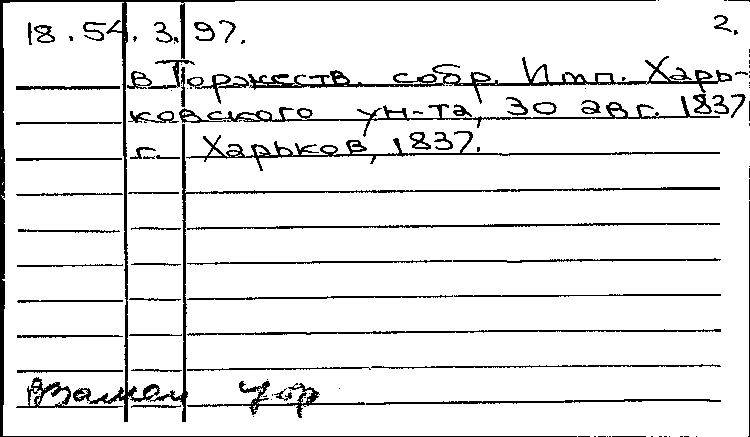 18.54.3.97.
2.
в Торжеств. собр. Имп. Харь-
ковского ун-та, 30 авг. 1837
г. Харьков, 1837.
Взамен